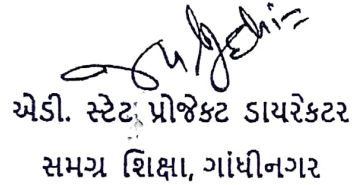 એડી. સ્ટેટ પ્રોજેક્ટ ડાયરેકટર
સમગ્ર શિક્ષા, ગાંધીનગર